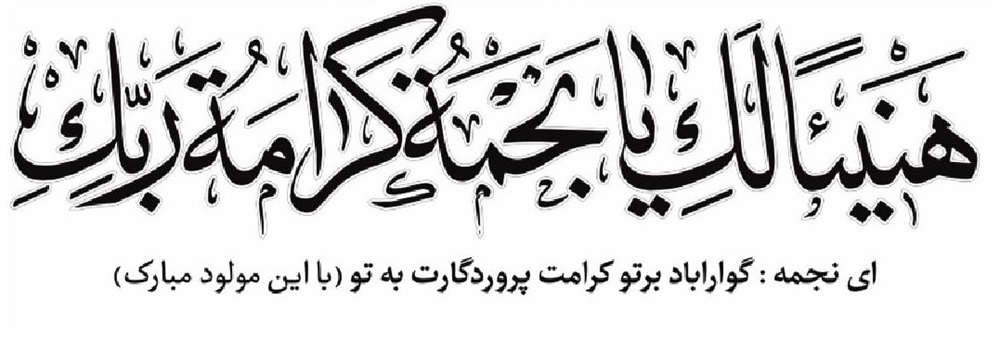 هَنيئًا لَكِ يا نَجْمَةُ كَرَامَةُ رَبِّكِ
ای نجمه : گواراباد برتو کرامت پروردگارت به تو (با این مولود مبارک)